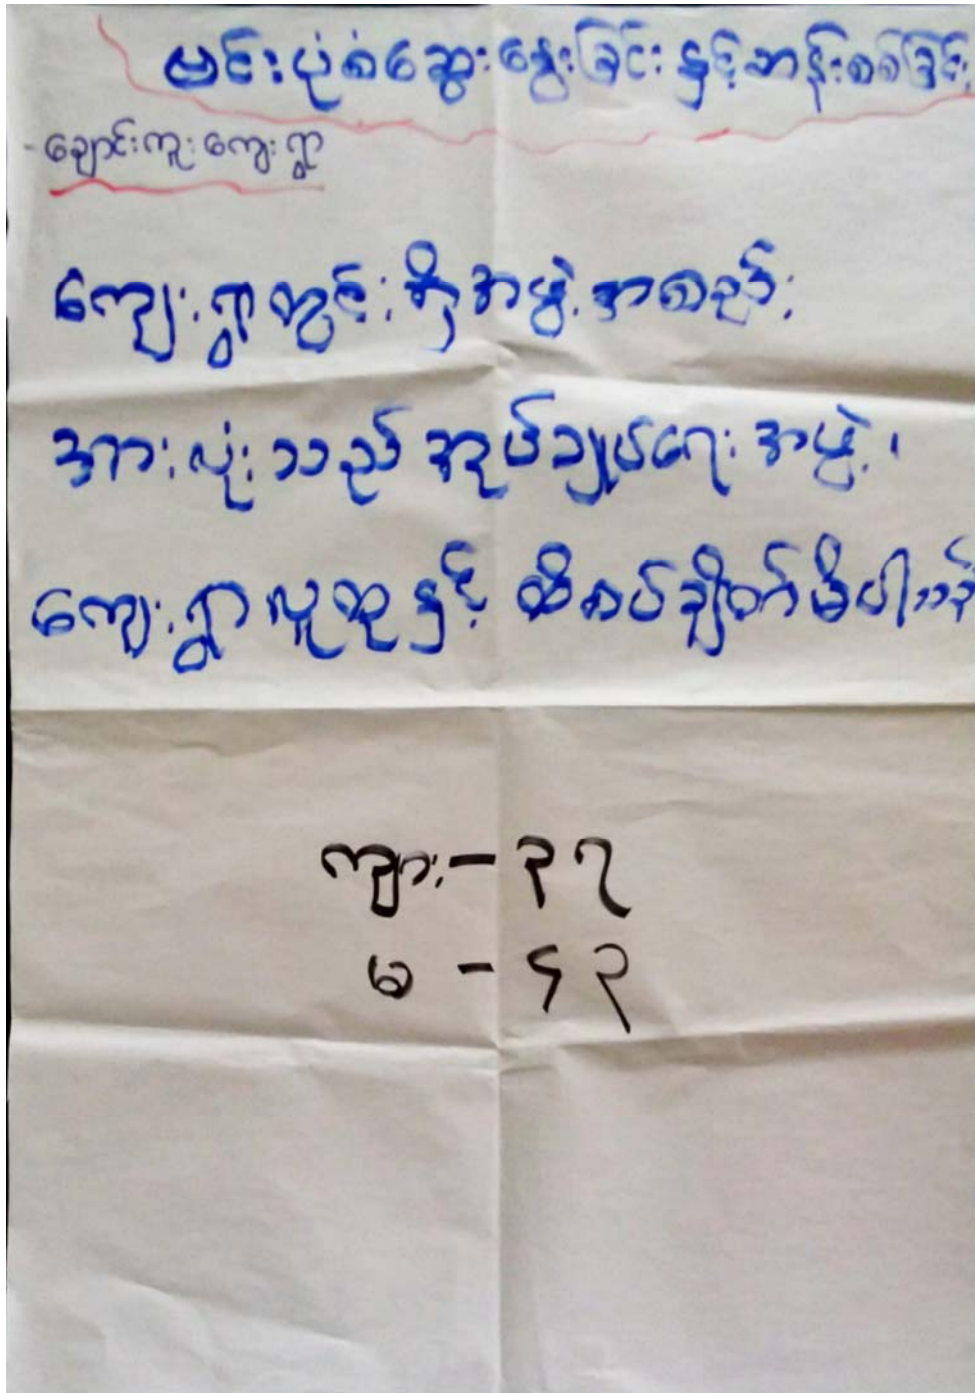 ဗင်းပုံစံဆွေးနွေးခြင်းနှင့်ဆန်းစစ်ခြင်း
- ချောင်းကူးကျေးရွာ
ကျေးရွာတွင်းရှိအဖွဲ့အစည်း
အားလုံးသည် အုပ်ချုပ်ရေးအဖွဲ့၊
ကျေးရွာလူထုနှင့် ထိစပ်ချိတ်မိပါသည်
ကျား - ၃၇
မ - ၄၃